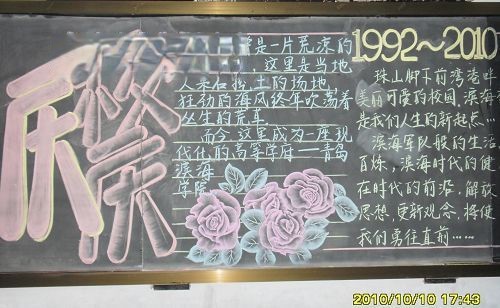 庆祭
曾是一片荒凉的
这里是当地
人采石挖土的场地
狂劲的海风终年吹荡着
丛生的荒草
而今这里成为一座现
代化的高等学府——青岛
滨海
学院
1992～2010
珠山脚下前湾港畔
美丽可爱的校园，滨海
是我们人生的新起点…
滨海军队般的生活
百炼，滨海时代的健
在时代的前沿，解放
思想，更新观念，将使
我们勇往直前……
2010/10/10 17:43